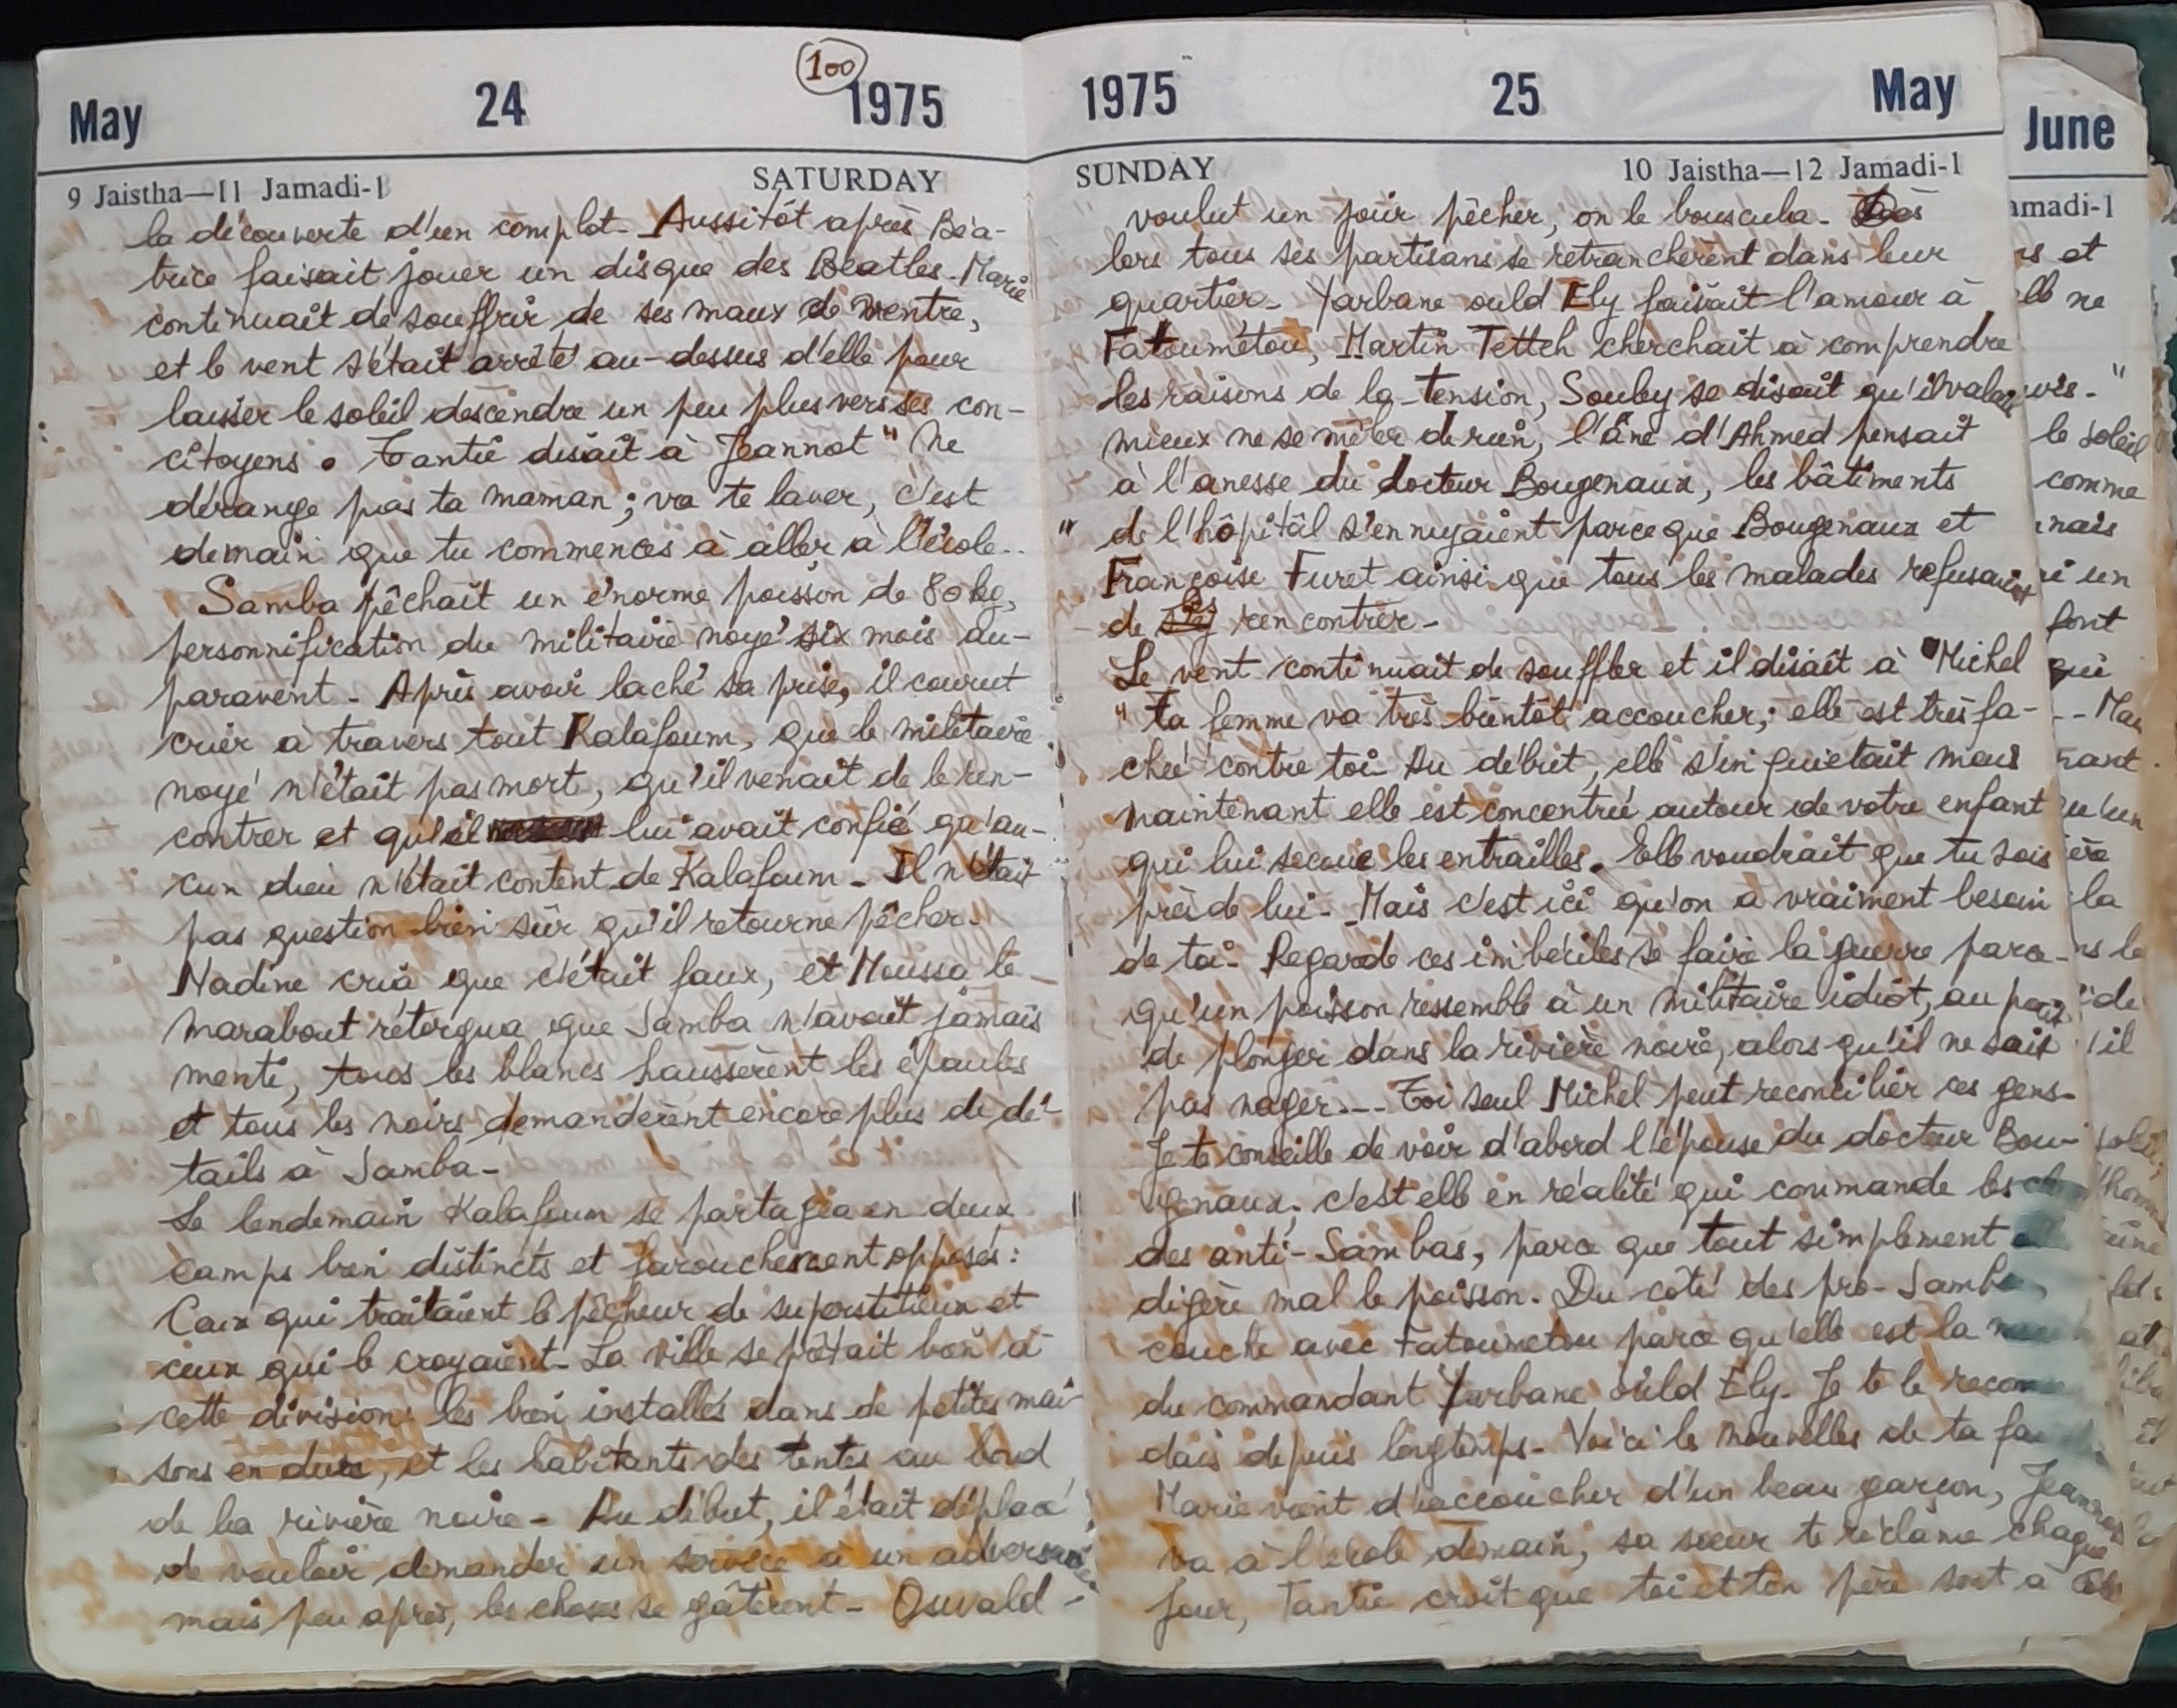 May 24 1975
100
9 Jaistha—11 Jamadi-1 SATURDAY
la découverte d'un complot - Aussitôt après Béa-
trice faisait jouer un disque des Beatles - Marie
continuait de souffrir de ses maux de ventre,
et le vent s'était arrêté au-dessus d'elle pour
laisser le soleil descendre un peu plus vers ses con-
citoyens. Tantie disait à Jeannot " Ne
dérange pas ta maman ; va te laver, c'est
demain que tu commences à aller à l'école..
Samba pêchait un énorme poisson de 80 kg,
personnification du militaire noyé six mois au-
paravent - Après avoir laché sa prise, il courut
crier à travers tout Kalafoum, que le militaire
noyé n'était pas mort, qu'il venait de le ren-
contrer et qu'il lui avait confié qu'au-
cun dieu n'était content de Kalafoum - Il n'était
pas question bien sûr qu'il retourne pêcher -
Nadine cria que c'était faux, et Moussa le
marabout rétorqua que Samba n'avait jamais
menti, tous les blancs haussèrent les épaules
et tous les noirs demandèrent encore plus de dé-
tails à Samba -
Le lendemain Kalafoum se partagea en deux
camps bien distincts et farouchement opposés :
Ceux qui traitaient le pêcheur de superstitieux et
ceux qui le croyaient - La ville se prêtait bien à
cette division : les bien installés dans de petites mai-
sons en dure, et les habitants des tentes au bord
de la rivière noire - Au début, il était déplacé
de vouloir demander un service à un adversaire
mais peu après, les choses se gâtèrent - Oswald -
1975 25 May
SUNDAY 10 Jaistha—12 Jamadi-1
voulut un jour pêcher, on le bouscula - Dès
lors tous ses partisans se retranchèrent dans leur
quartier - Yarbane ould Ely faisait l'amour à
Fatoumétou, Martin Tetteh cherchait à comprendre
les raisons de la tension, Souley se disait qu'il valait
mieux ne se mêler de rien, l'Âne d'Ahmed pensait
à l'anesse du docteur Bougenaux, les bâtiments
" de l'hôpitâl s'ennuyaient parce que Bougenaux et
Françoise Furet ainsi que tous les malades refusaient
de les rencontrer -
Le vent continuait de souffler et il disait à Michel
" ta femme va très bientôt accoucher ; elle est très fa-
chée contre toi - Au début, elle s'inquietait mais
maintenant elle est concentrée autour de votre enfant
qui lui secoue les entrailles. Elle voudrait que tu sois
près de lui - Mais c'est ici qu'on a vraiment besoin
de toi - Regarde ces imbéciles se faire la guerre parce-
qu'un poisson ressemble à un militaire idiot, au point
de plonger dans la rivière noire, alors qu'il ne sait
pas nager --- Toi seul Michel peut reconcilier ces gens -
Je te conseille de voir d'abord l'épouse du docteur Bou-
genaux ; c'est elle en réalité qui commande les
des anti-Sambas, parce que tout simplement
digère mal le poisson. Du côté des pro-Samba,
couche avec Fatoumetou parce qu'elle est la
du commandant Yarbane ould Ely - Je te le recom
dais depuis longtemps - Voici les nouvelles de ta
Marie vient d'accoucher d'un beau garçon, Jeannot
va à l'école demain, sa sœur te réclame chaque
jour, Tantie croit que toi et ton père sont à
June
amadi-1
et
ne
"
le soleil
comme
un
font
qui
la
de
il